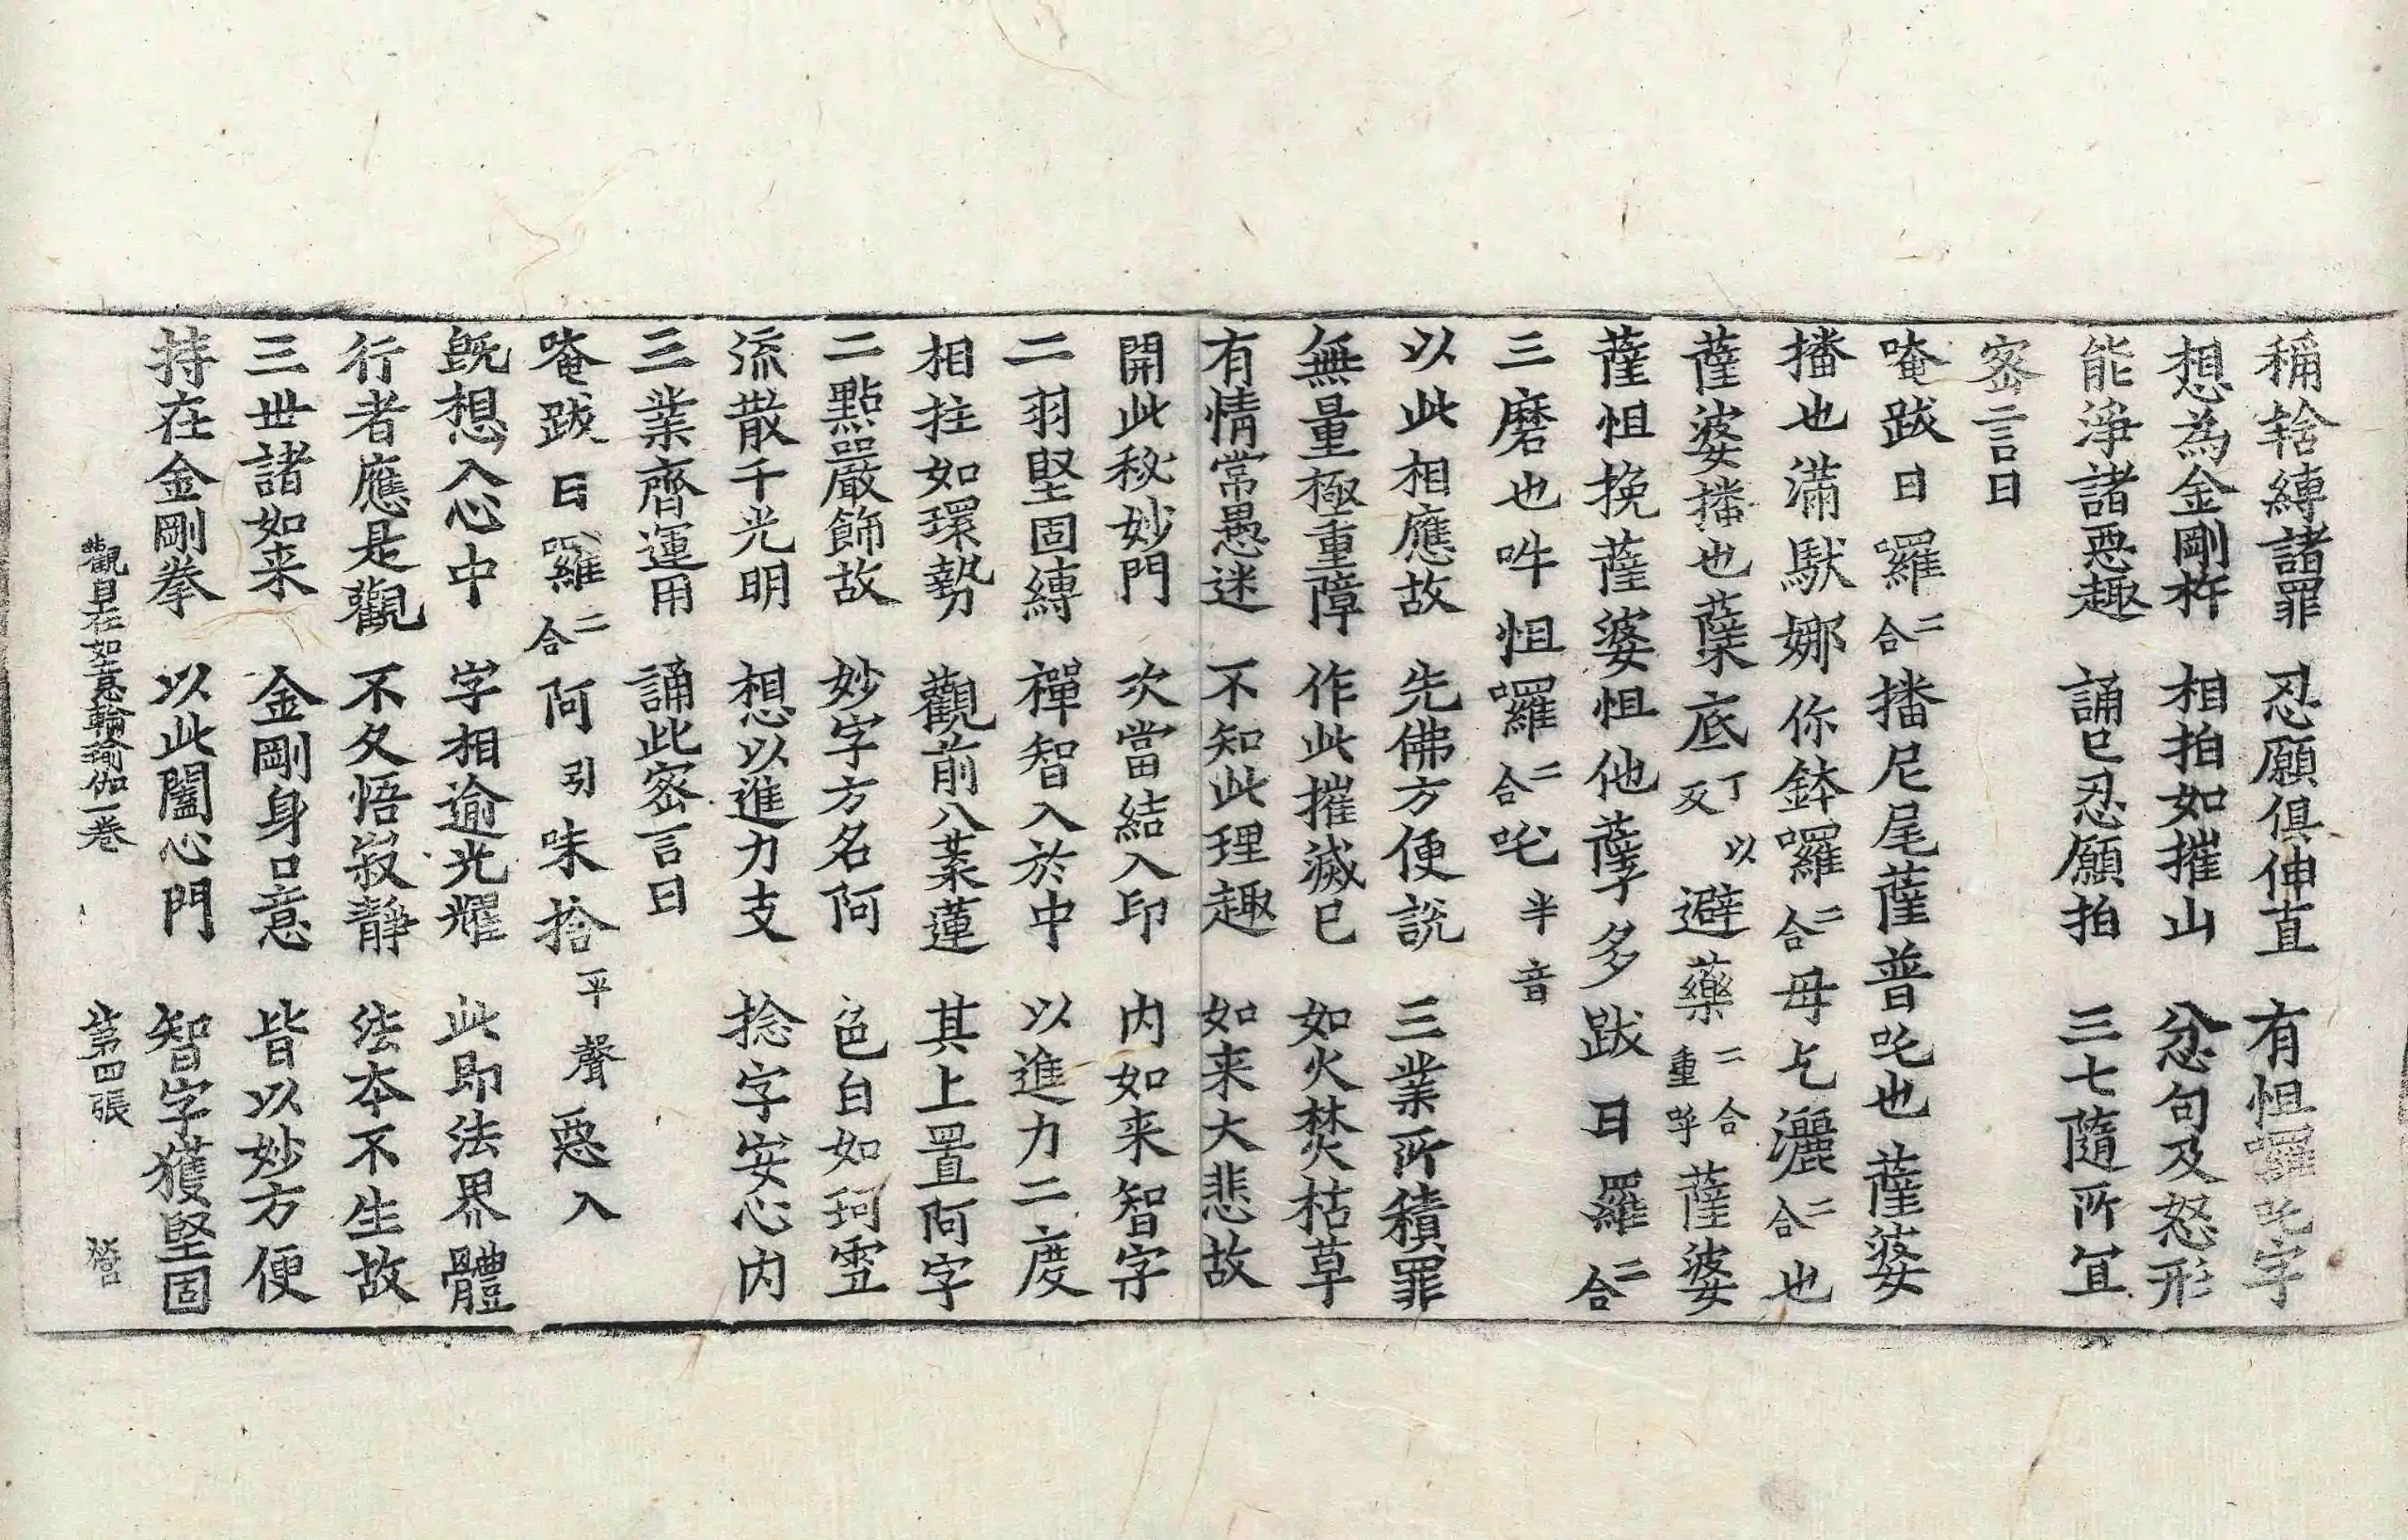 稱辢縳諸罪 忍願俱伸直 有怛囉吒字
想為金剛杵 相拍如摧山 忿句及怒形
能淨諸惡趣 誦已忍願拍 三七隨所冝
密言曰
唵跋日囉二合播尼尾薩普吒也薩婆
播也滿馱娜你鉢囉二合毋乞灑二合也
薩婆播也蘖底丁以反避藥二合重呼薩婆
薩怛挽薩婆怛他蘖多跋日羅二合
三磨也吽怛囉二合吒半音
以此相應故 先佛方便説 三業所積罪
無量極重障 作此摧滅已 如火焚枯草
有情常愚迷 不知此理趣 如来大悲故
開此秘妙門 次當結入印 内如来智字
二羽堅固縛 禪智入於中 以進力二度
相拄如環勢 觀前八葉蓮 其上置阿字
二點嚴飾故 妙字方名阿 色白如珂雪
流散千光明 想以進力支 捻字安心内
三業齊運用 誦此密言曰
唵跋日囉二合阿引味捨平聲惡入
旣想入心中 字相逾光耀 此即法界體
行者應是觀 不久悟寂静 法本不生故
三世諸如来 金剛身口意 皆以妙方便
持在金剛拳 以此闔心門 智字獲堅固
觀自在如意輪瑜伽一卷 第四張